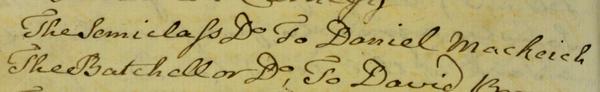 The Semiclass Do To Daniel Mackeich
The Batchellor Do, To David